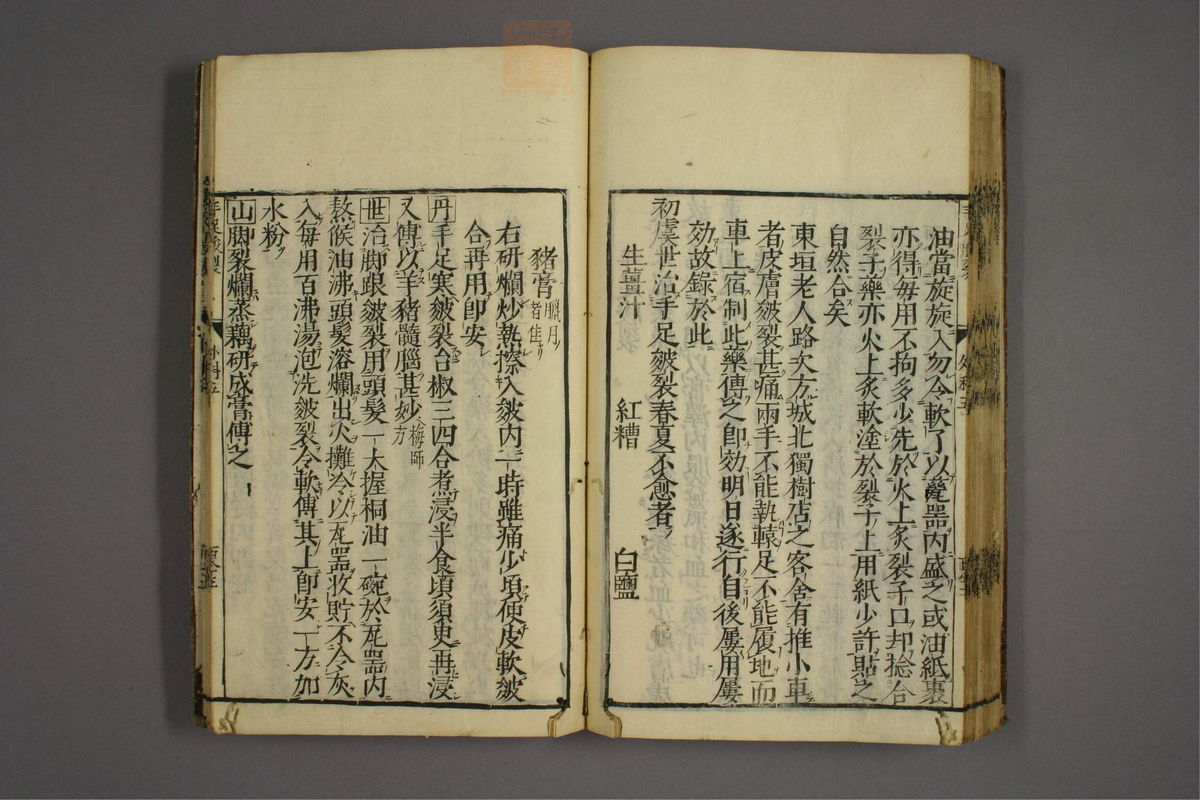 油當旋旋入勿令軟了以甆器內盛之或油紙裹
亦得每用不拘多少先於火上炙裂子口却捻合
裂子藥亦火上炙軟塗於裂子上用紙少許貼之
自然合矣
東垣老人路次方城北獨樹店之客舍有推小車
者皮膚皴裂甚痛兩手不能執轅足不能履地而
車上宿制此藥傅之卽効明日遂行自後屢用屢
効故錄於此
初虞世治手足皴裂春夏不愈者
生薑汁 紅糟 白鹽
豬膏臘月者佳
右研爛炒熱擦入皴內一時雖痛少頃便皮軟皴
合再用卽安
丹手足寒皴裂台椒三四合煮浸半食頃須臾再浸
又傅以羊豬髓腦甚妙梅師方
世治脚跟皴裂用頭髮一大握桐油一碗於瓦器內
熬候油沸頭髮溶爛出火攤冷以瓦器收貯不令灰
入每用百沸湯泡洗皴裂令軟傅其上卽安一方加
水粉
山脚裂爛蒸藕研成膏傅之